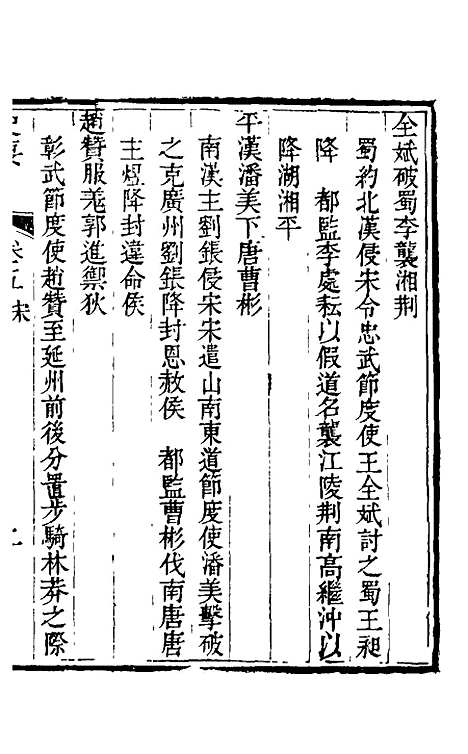 全斌破蜀李襲湘荆
蜀約北漢侵宋令忠武節度使王全斌討之蜀王昶
降　都監李處耘以假道名襲江陵荆南高繼沖以
降湖湘平
平漢潘美下唐曹彬
南漢主劉鋹侵宋宋遣山南東道節度使潘美擊破
之克廣州劉鋹降封恩赦侯　都監曹彬伐南唐唐
主煜降封違命侯
趙贊服羗郭進禦狄
彰武節度使趙贊至延州前後分置步騎林莽之際
卷五宋